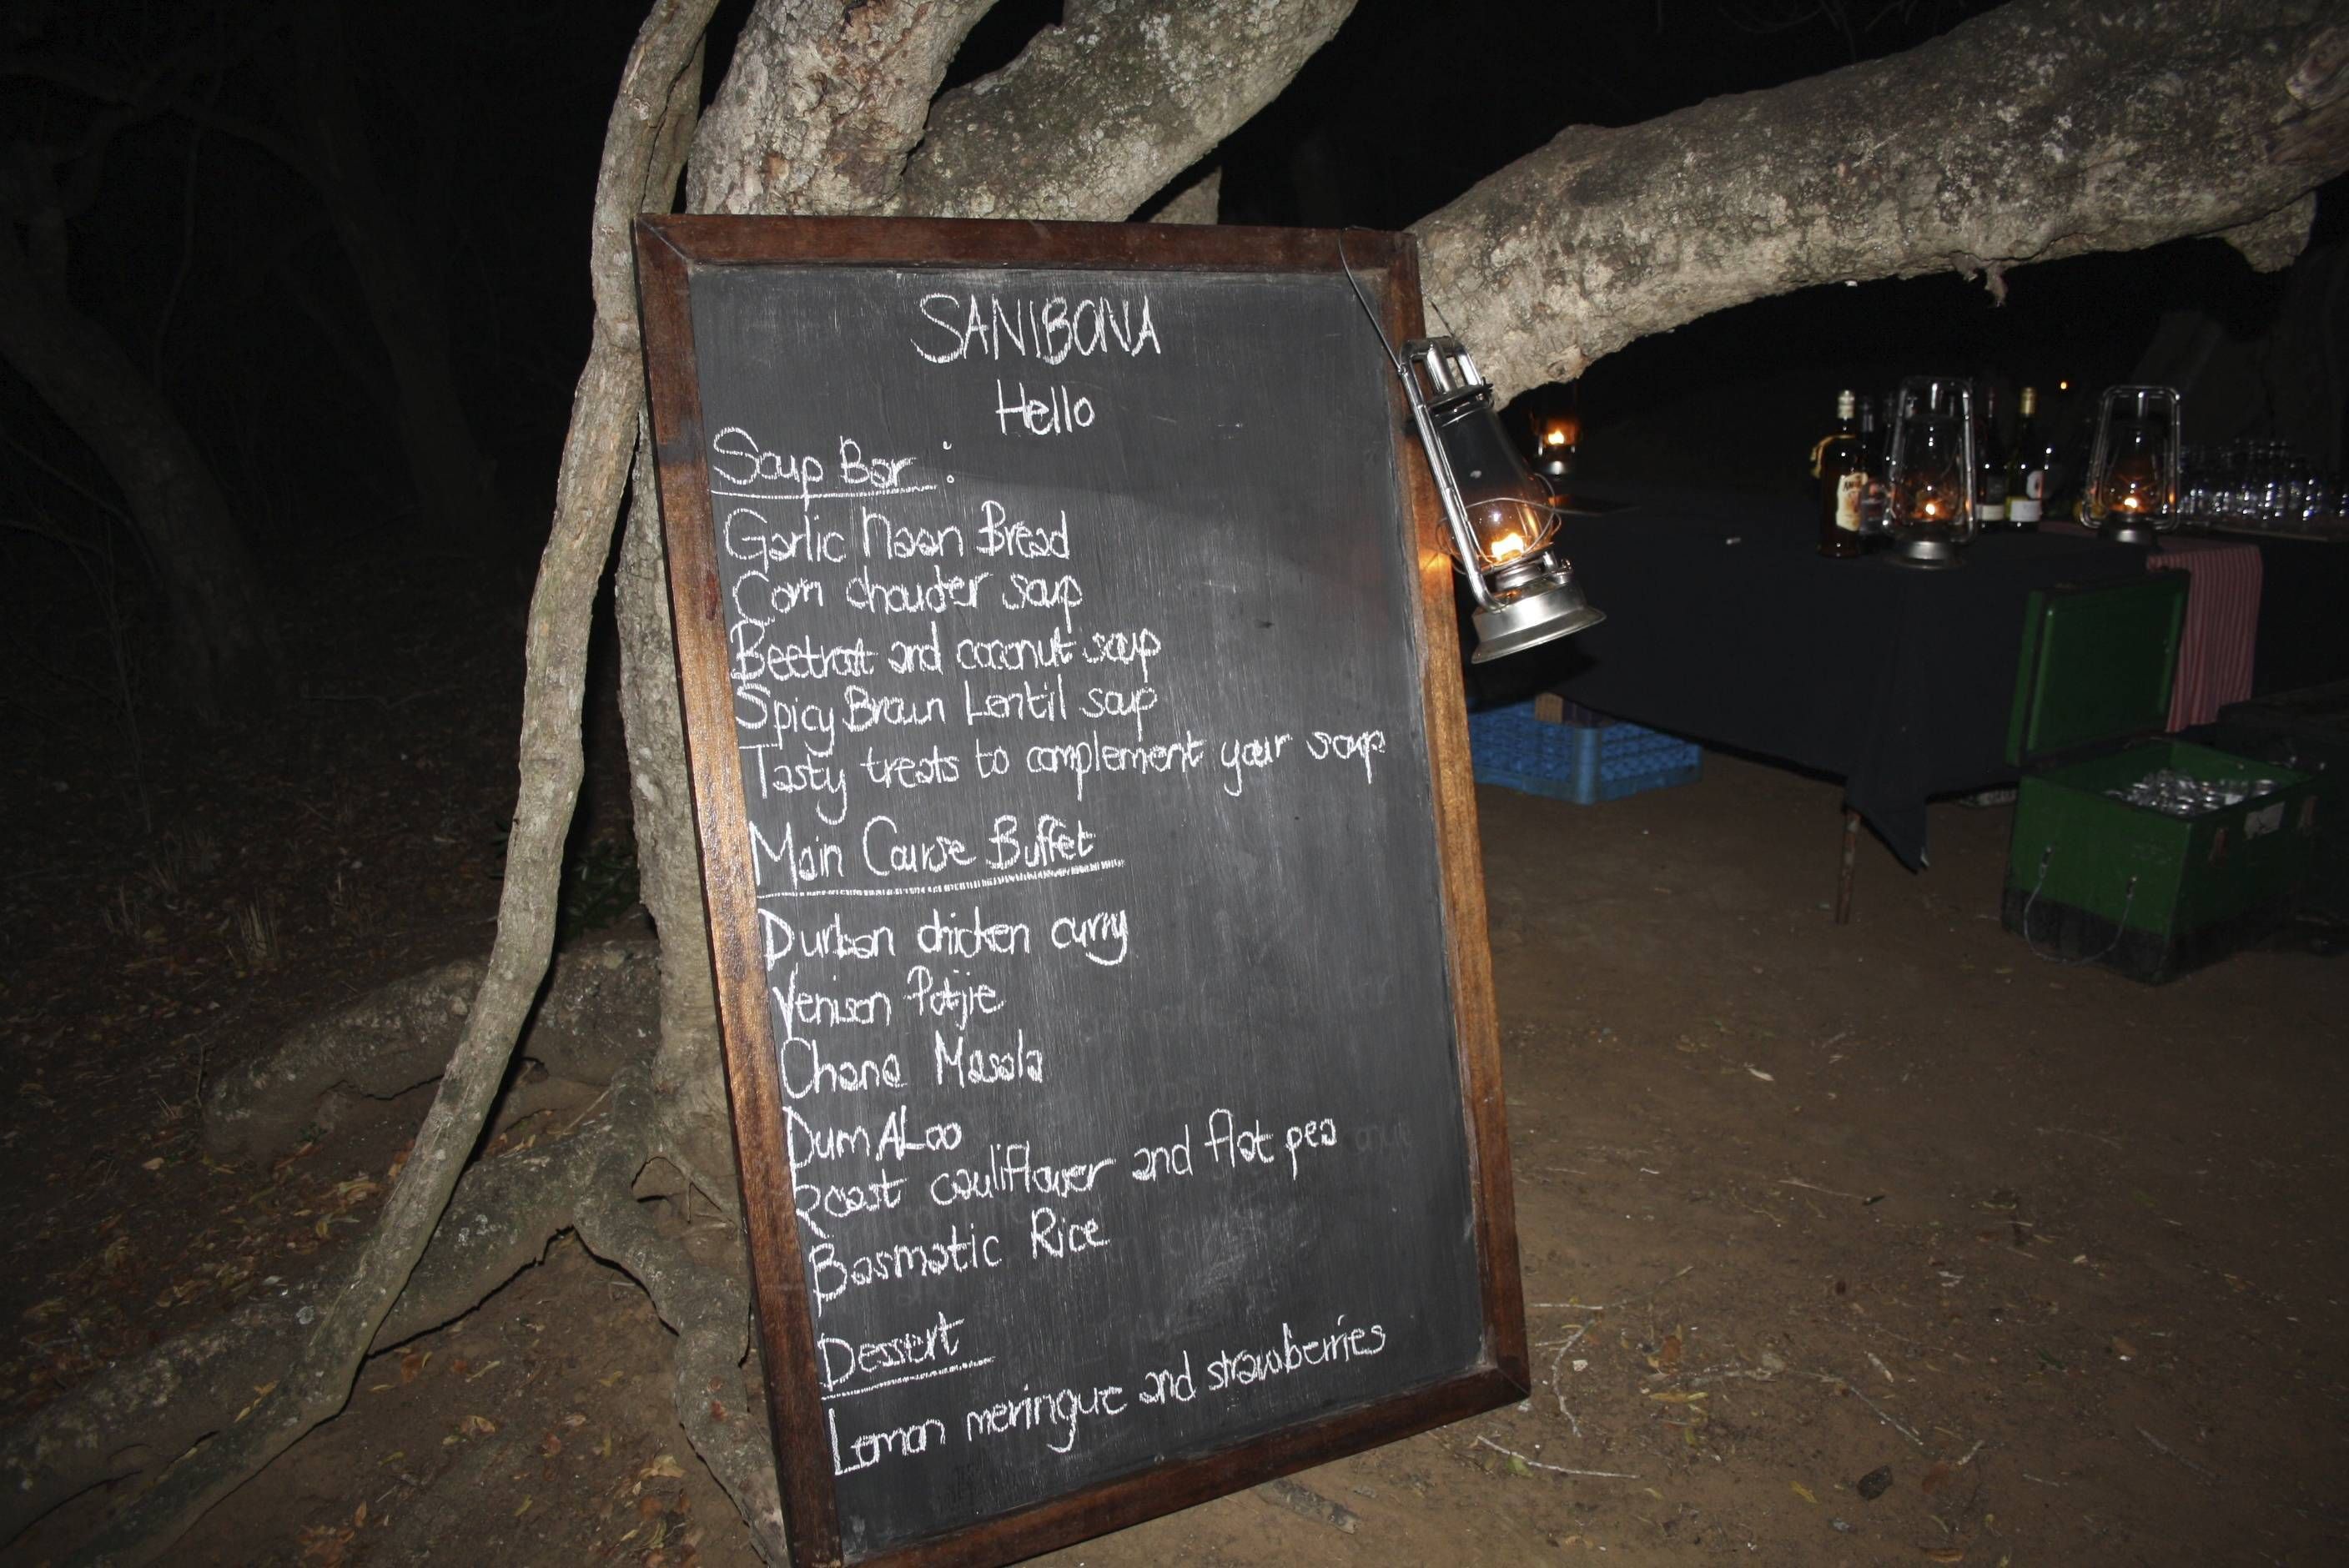 SANIBONA
Hello
Soup Bar :
Garlic Naan Bread
Corn chouder soup
Beetroot and coconut soup
Spicy Brown Lentil soup
Tasty treats to complement your soup
Main Course Buffet
Durban chicken curry
Venison Potjie
Chana Masala
Dum ALoo
Roast cauliflower and flat pea
Basmatic Rice
Dessert
Lemon meringue and strawberries